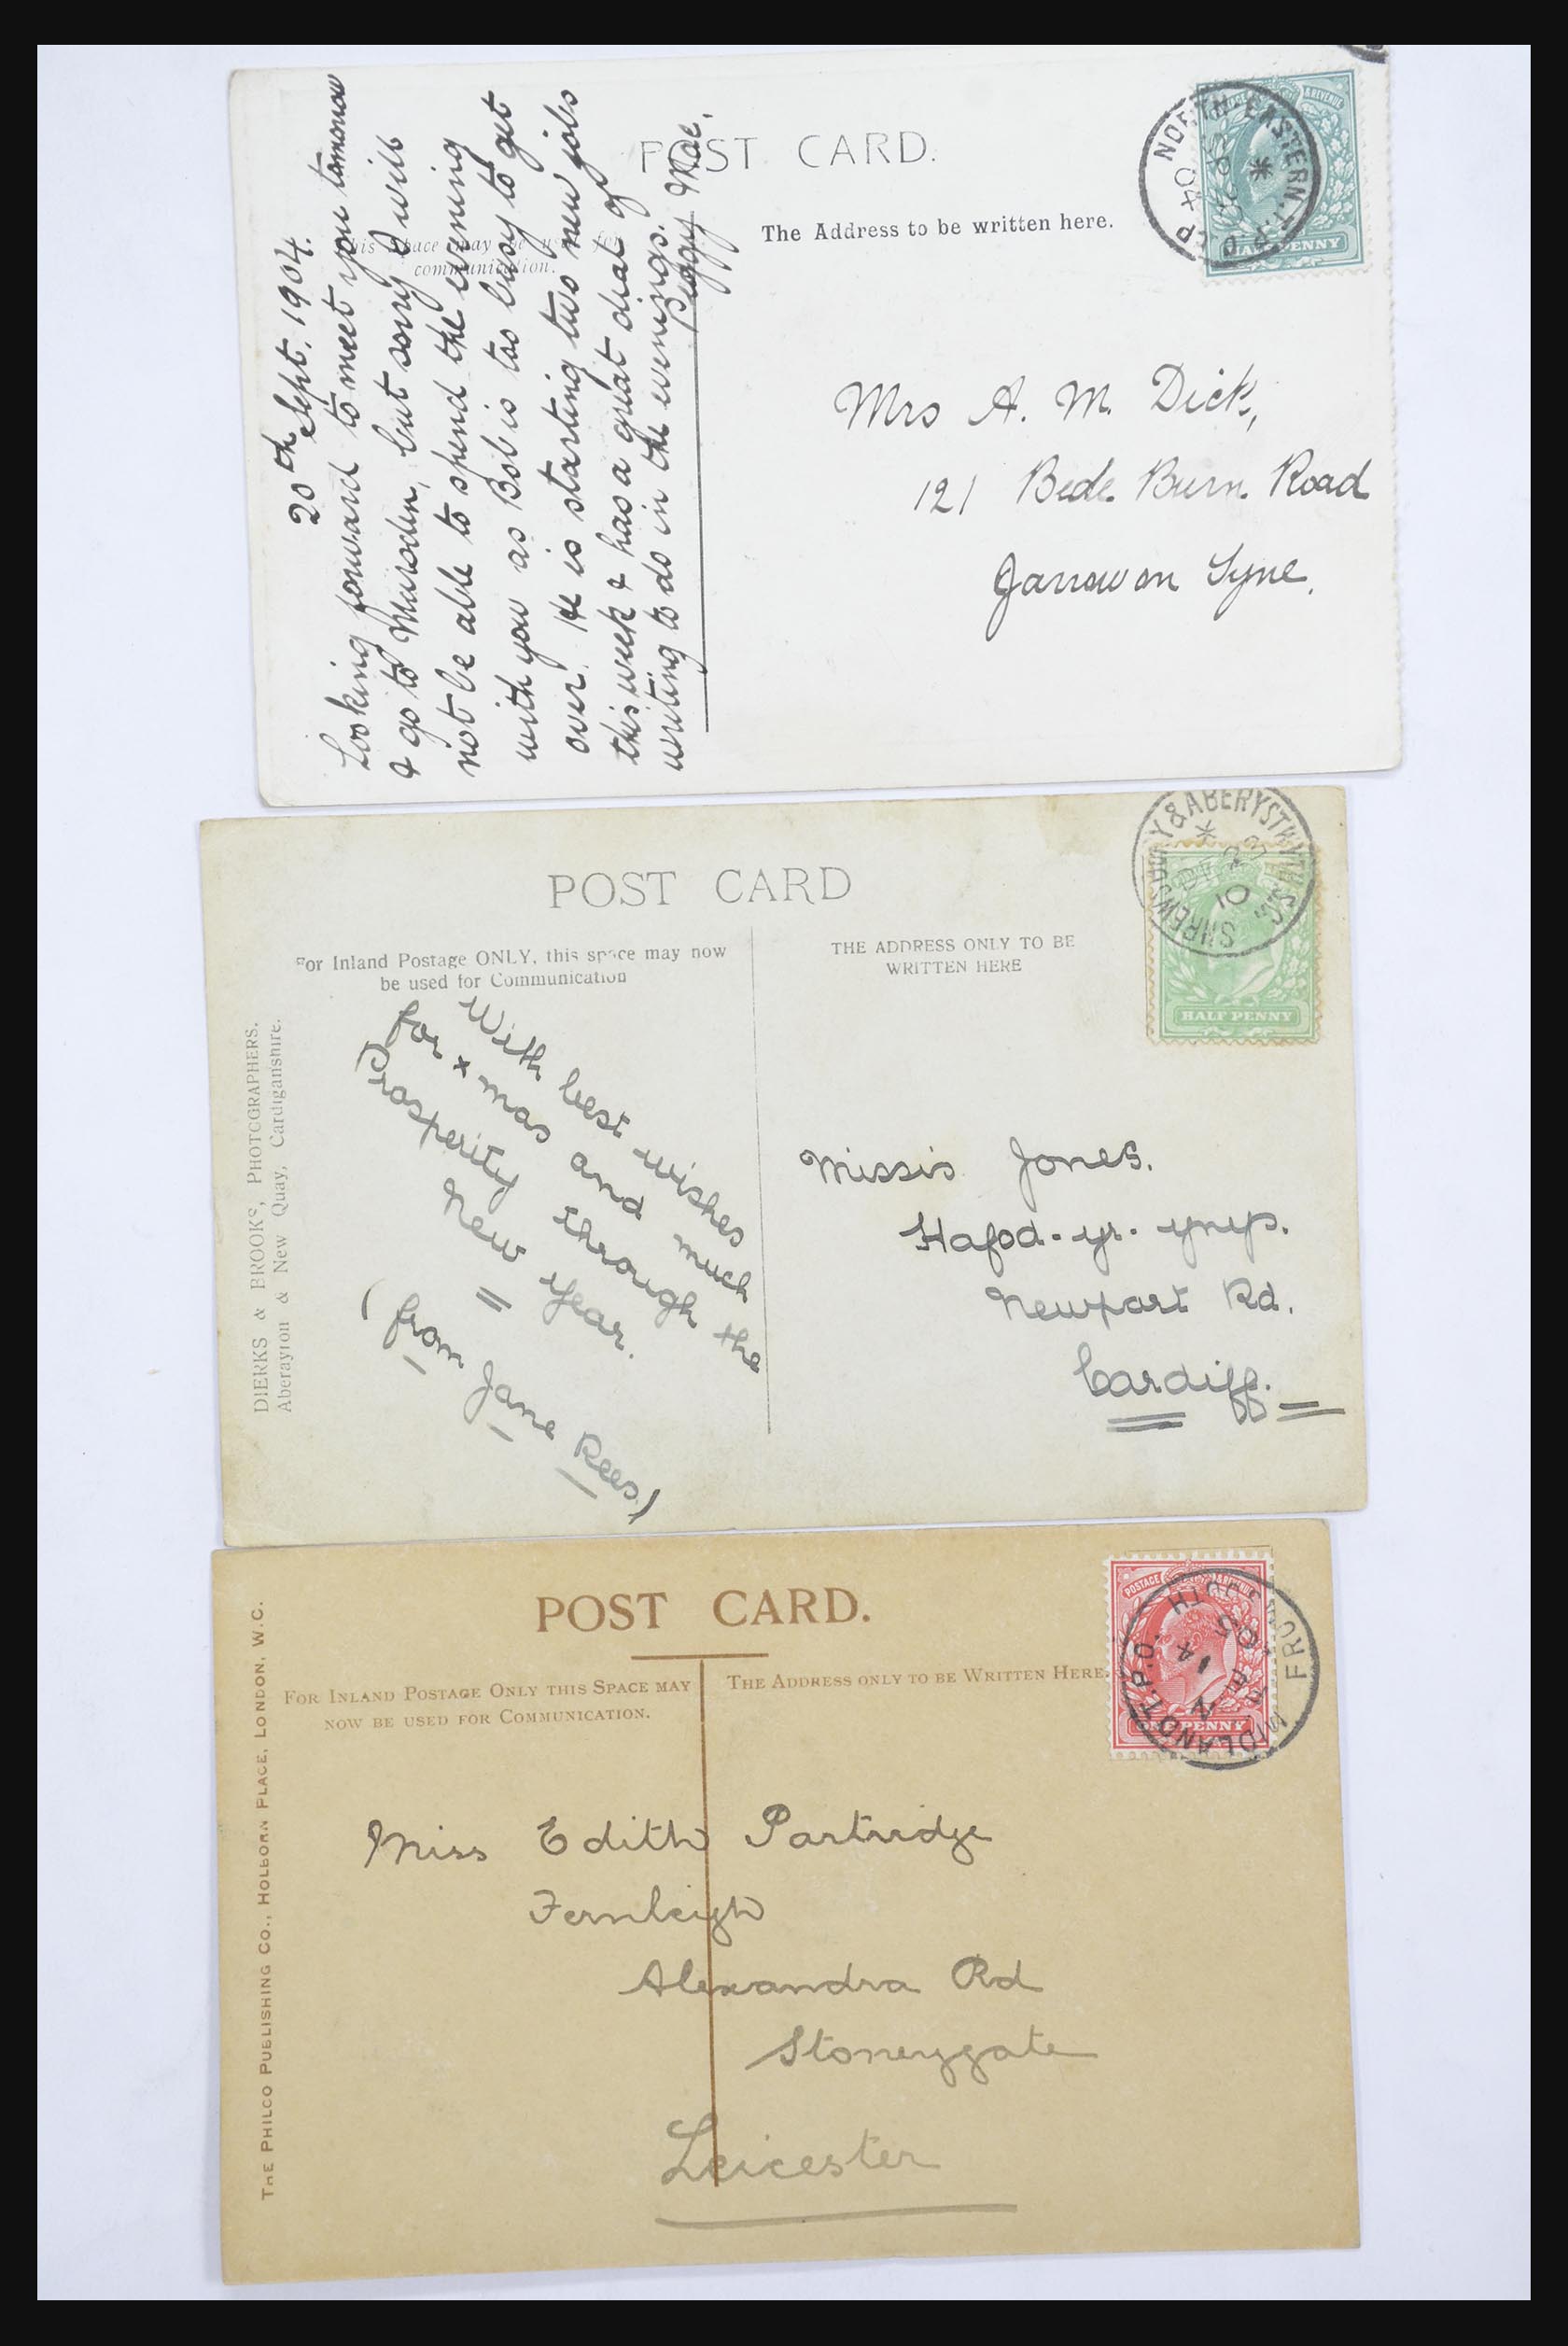 POST CARD.
This space may be used for
communication.
The Address to be written here.
20th Sept. 1904.
Looking forward to meet you tomorrow
& go to Marsden, but sorry I will
not be able to spend the evening
with you as Bob is too busy to get
over. He is starting two new jobs
this week & has a great deal of
writing to do in the evenings.
Peggy Mac.
NORTH EASTERN T.P.O
HALF PENNY
Mrs A. M. Dick,
121 Bede Burn Road
Jarrow on Tyne.
POST CARD
For Inland Postage ONLY, this space may now
be used for Communication
THE ADDRESS ONLY TO BE
WRITTEN HERE
DIERKS & BROOKS, PHOTOGRAPHERS.
Aberayron & New Quay, Cardiganshire.
With best wishes
for xmas and much
Prosperity through the
New Year.
(from Jane Rees)
SHREWSBURY & ABERYSTWYTH
DE 23
10
HALF PENNY
Missis Jones.
Hafod-yr-ynys.
Newport Rd.
Cardiff.
POST CARD.
FOR INLAND POSTAGE ONLY THIS SPACE MAY
NOW BE USED FOR COMMUNICATION.
THE ADDRESS ONLY TO BE WRITTEN HERE.
THE PHILCO PUBLISHING CO., HOLBORN PLACE, LONDON, W.C.
POSTAGE & REVENUE
ONE PENNY
MIDLAND T.P.O.
Miss Edith Partridge
Fernleigh
Alexandra Rd
Stoneygate
Leicester